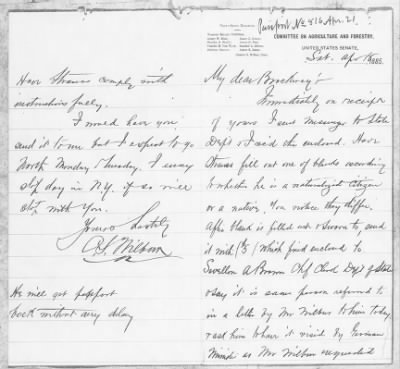 Passport No 816 Apr. 21
COMMITTEE ON AGRICULTURE AND FORESTRY,
UNITED STATES SENATE,
Sat. Apr 18 1885.
My dear Brockway:
Immediately on receipt
of yours I sent messenger to State
Dept & I send the enclosed. Have
Straus fill out one of blanks according
to whether he is a naturalized citizen
or a native. You notice they differ.
After blank is filled out & sworn to, send
it with which find enclosed to
Sevellon A Brown Chf Clerk Dept of State
& say it is same person referred to
in a letter by Mr Wilbur to him today
& ask him to have it viséd by German
Minister as Mr Wilbur requested
Have Straus comply with
instructions fully.
I would have you
send it to me but I expect to go
North Monday or Tuesday. I may
stop day in N.Y. if so will
stop with You.
Yours Hastily
Wilbur
He will get passport
back without any delay